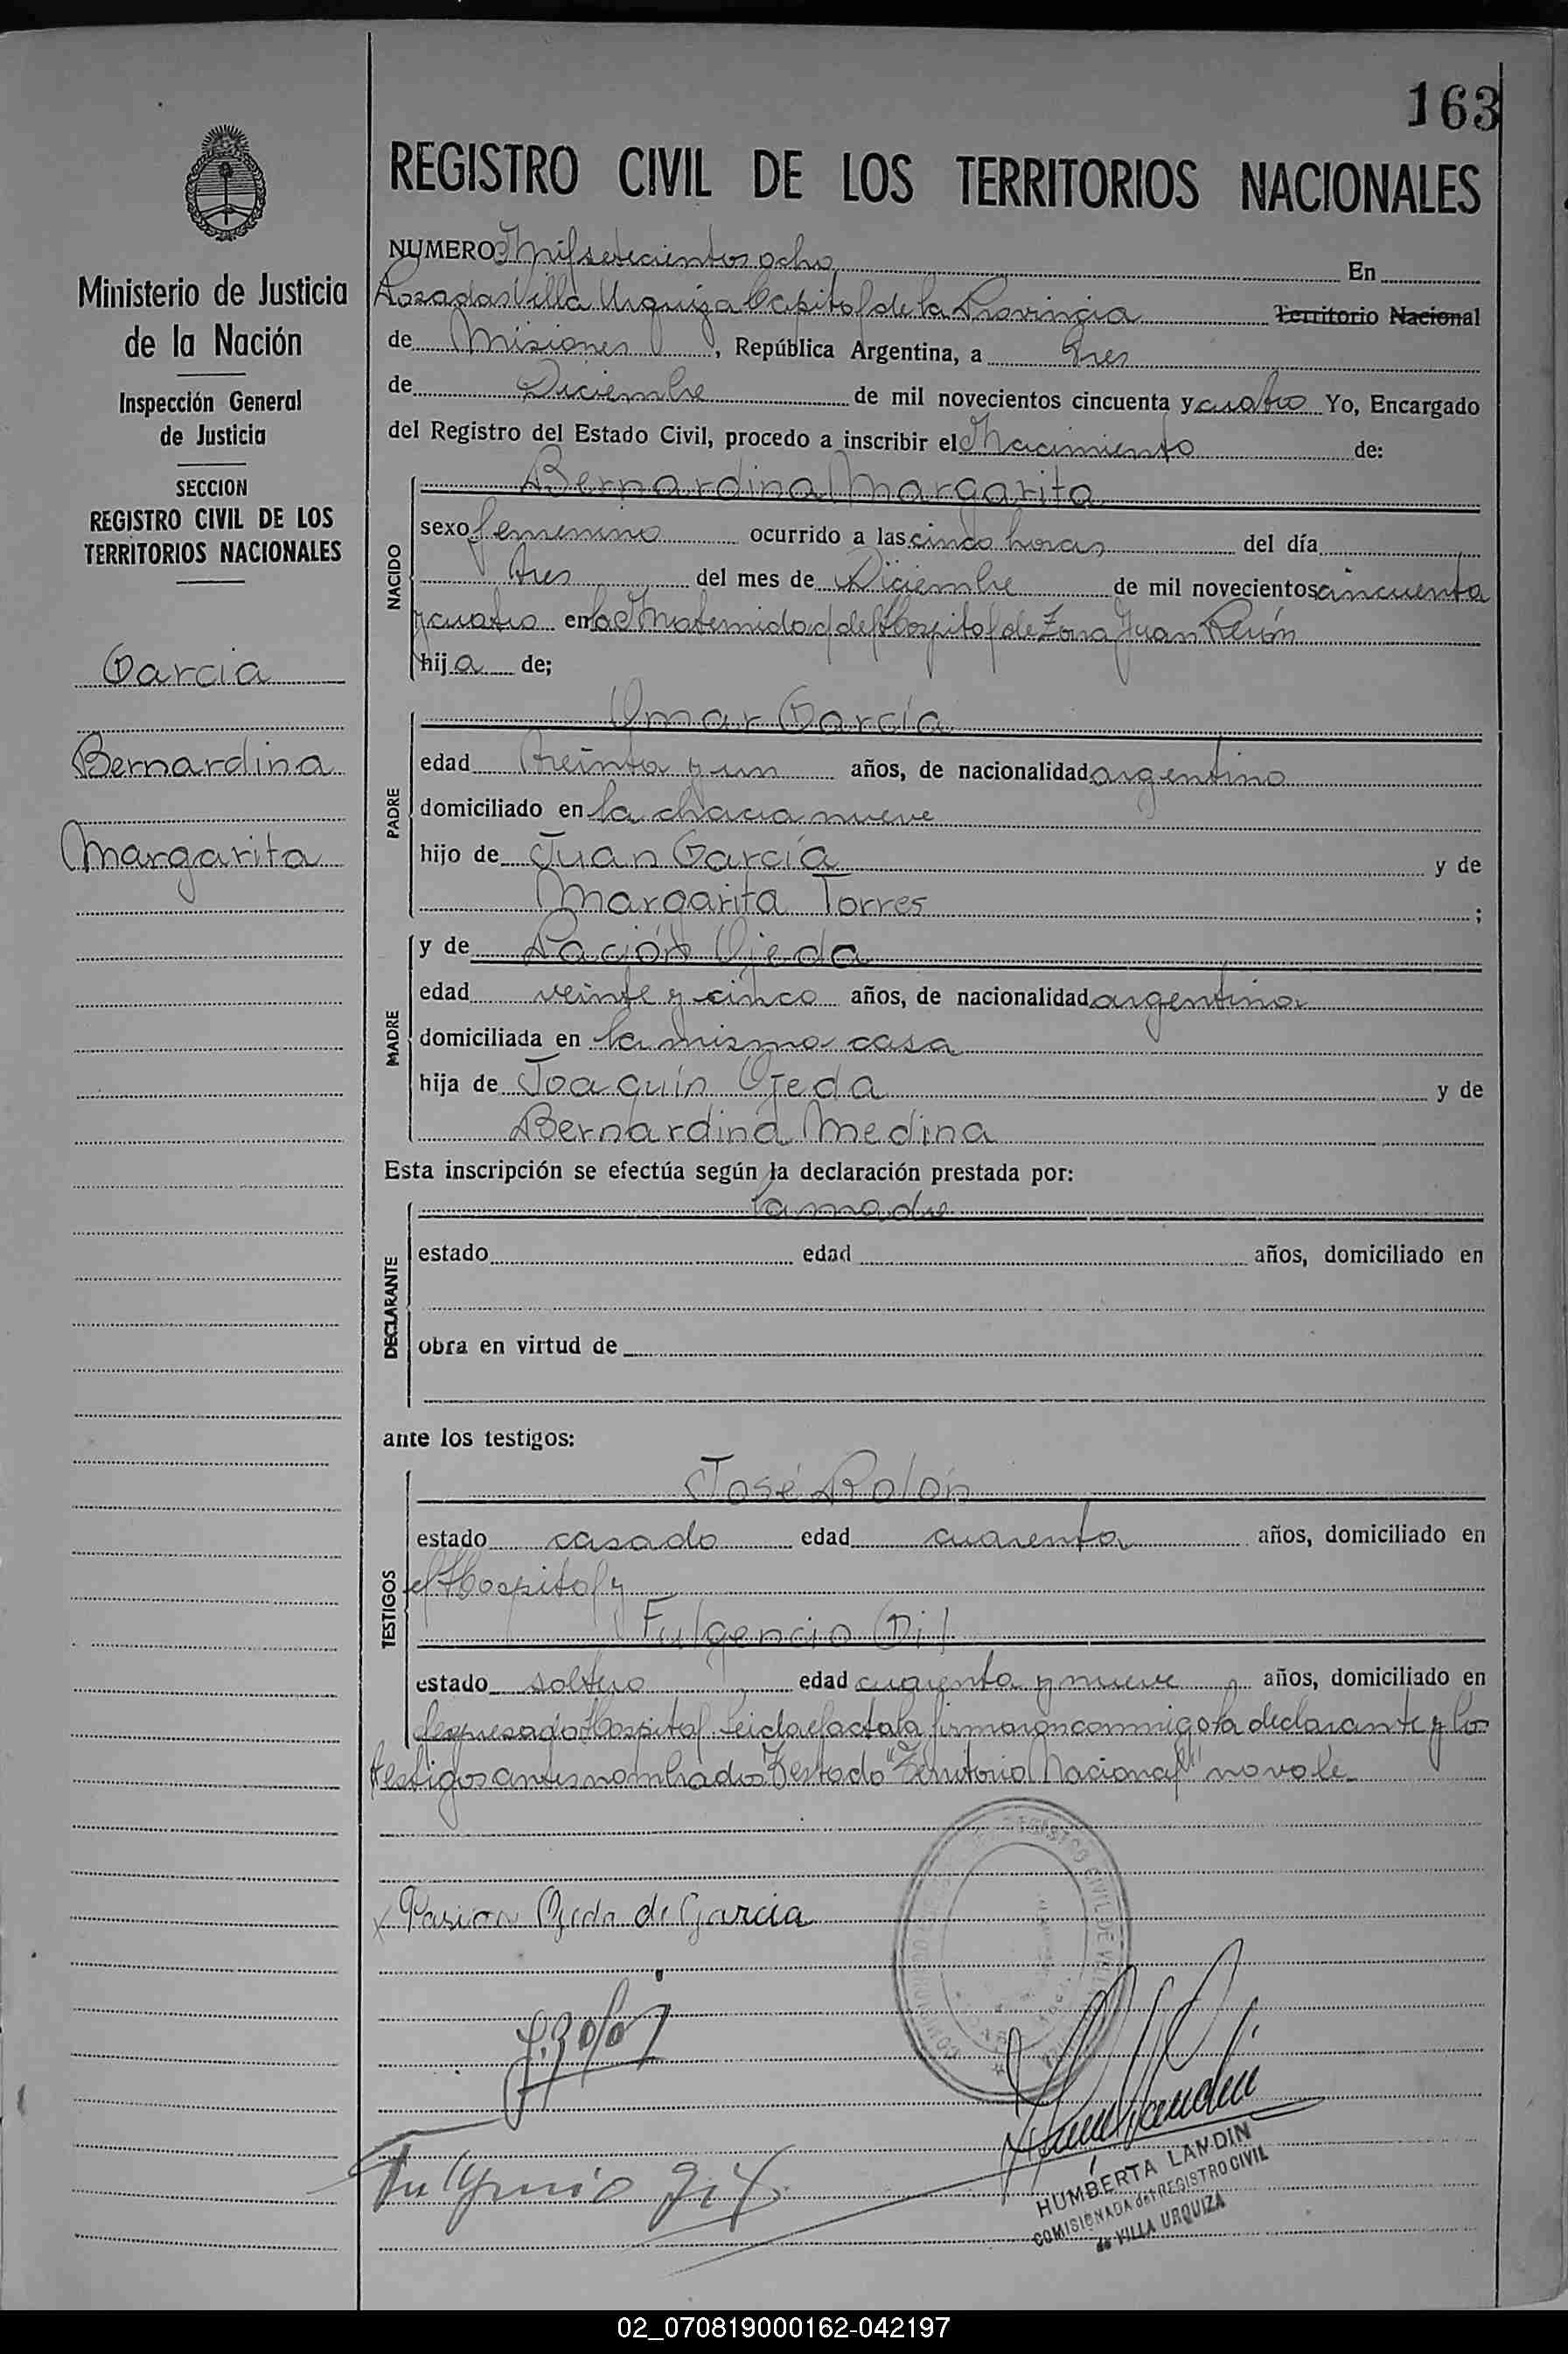 163
REGISTRO CIVIL DE LOS TERRITORIOS NACIONALES
Ministerio de Justicia
de la Nación
Inspección General
de Justicia
SECCION
REGISTRO CIVIL DE LOS
TERRITORIOS NACIONALES
Garcia
Bernardina
Margarita
NUMERO Mil setecientos ocho En
Posadas Villa Urquiza Capital de la Provincia Territorio Nacional
de Misiones, República Argentina, a Tres
de Diciembre de mil novecientos cincuenta y cuatro Yo, Encargado
del Registro del Estado Civil, procedo a inscribir el Nacimiento de:
NACIDO
Bernardina Margarita
sexo femenino ocurrido a las cinco horas del día
tres del mes de Diciembre de mil novecientos cincuenta
y cuatro en la Maternidad del Hospital de Zona Juan Perón
hija de;
PADRE
Omar García
edad Treinta y un años, de nacionalidad argentino
domiciliado en la chacra nueve
hijo de Juan García y de
Margarita Torres ;
MADRE
y de Pación Ojeda
edad veinte y cinco años, de nacionalidad argentina
domiciliada en la misma casa
hija de Joaquín Ojeda y de
Bernardina Medina
Esta inscripción se efectúa según la declaración prestada por:
DECLARANTE
la madre
estado edad años, domiciliado en
obra en virtud de
ante los testigos:
TESTIGOS
José Rolón
estado casado edad cuarenta años, domiciliado en
el Hospital y
Fulgencio Gil
estado soltero edad cuarenta y nueve años, domiciliado en
el expresado Hospital. Leida el acta la firmaron conmigo la declarante y los
testigos antes nombrados Testado "Territorio Nacional" no vale
x Pasion Ojeda de Garcia
J. Rolon
Fulgencio Gil
REGISTRO CIVIL DE VILLA
HUMBERTA LANDIN
COMISIONADA del REGISTRO CIVIL
de VILLA URQUIZA
02_070819000162-042197